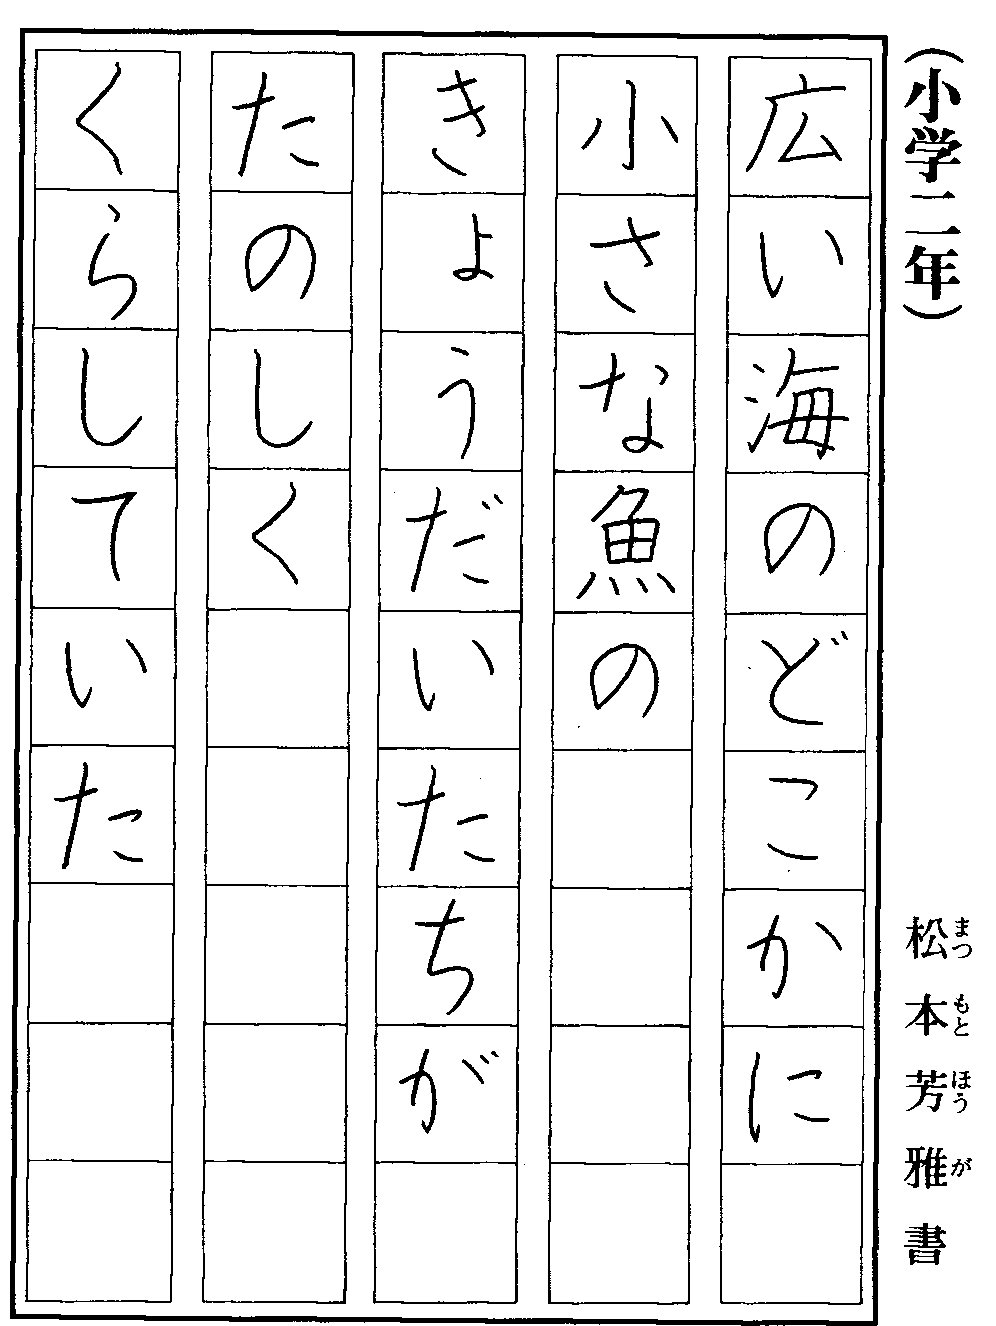 （小学二年）
松本芳雅書
まつもとほうが
広い海のどこかに
小さな魚の
きょうだいたちが
たのしく
くらしていた